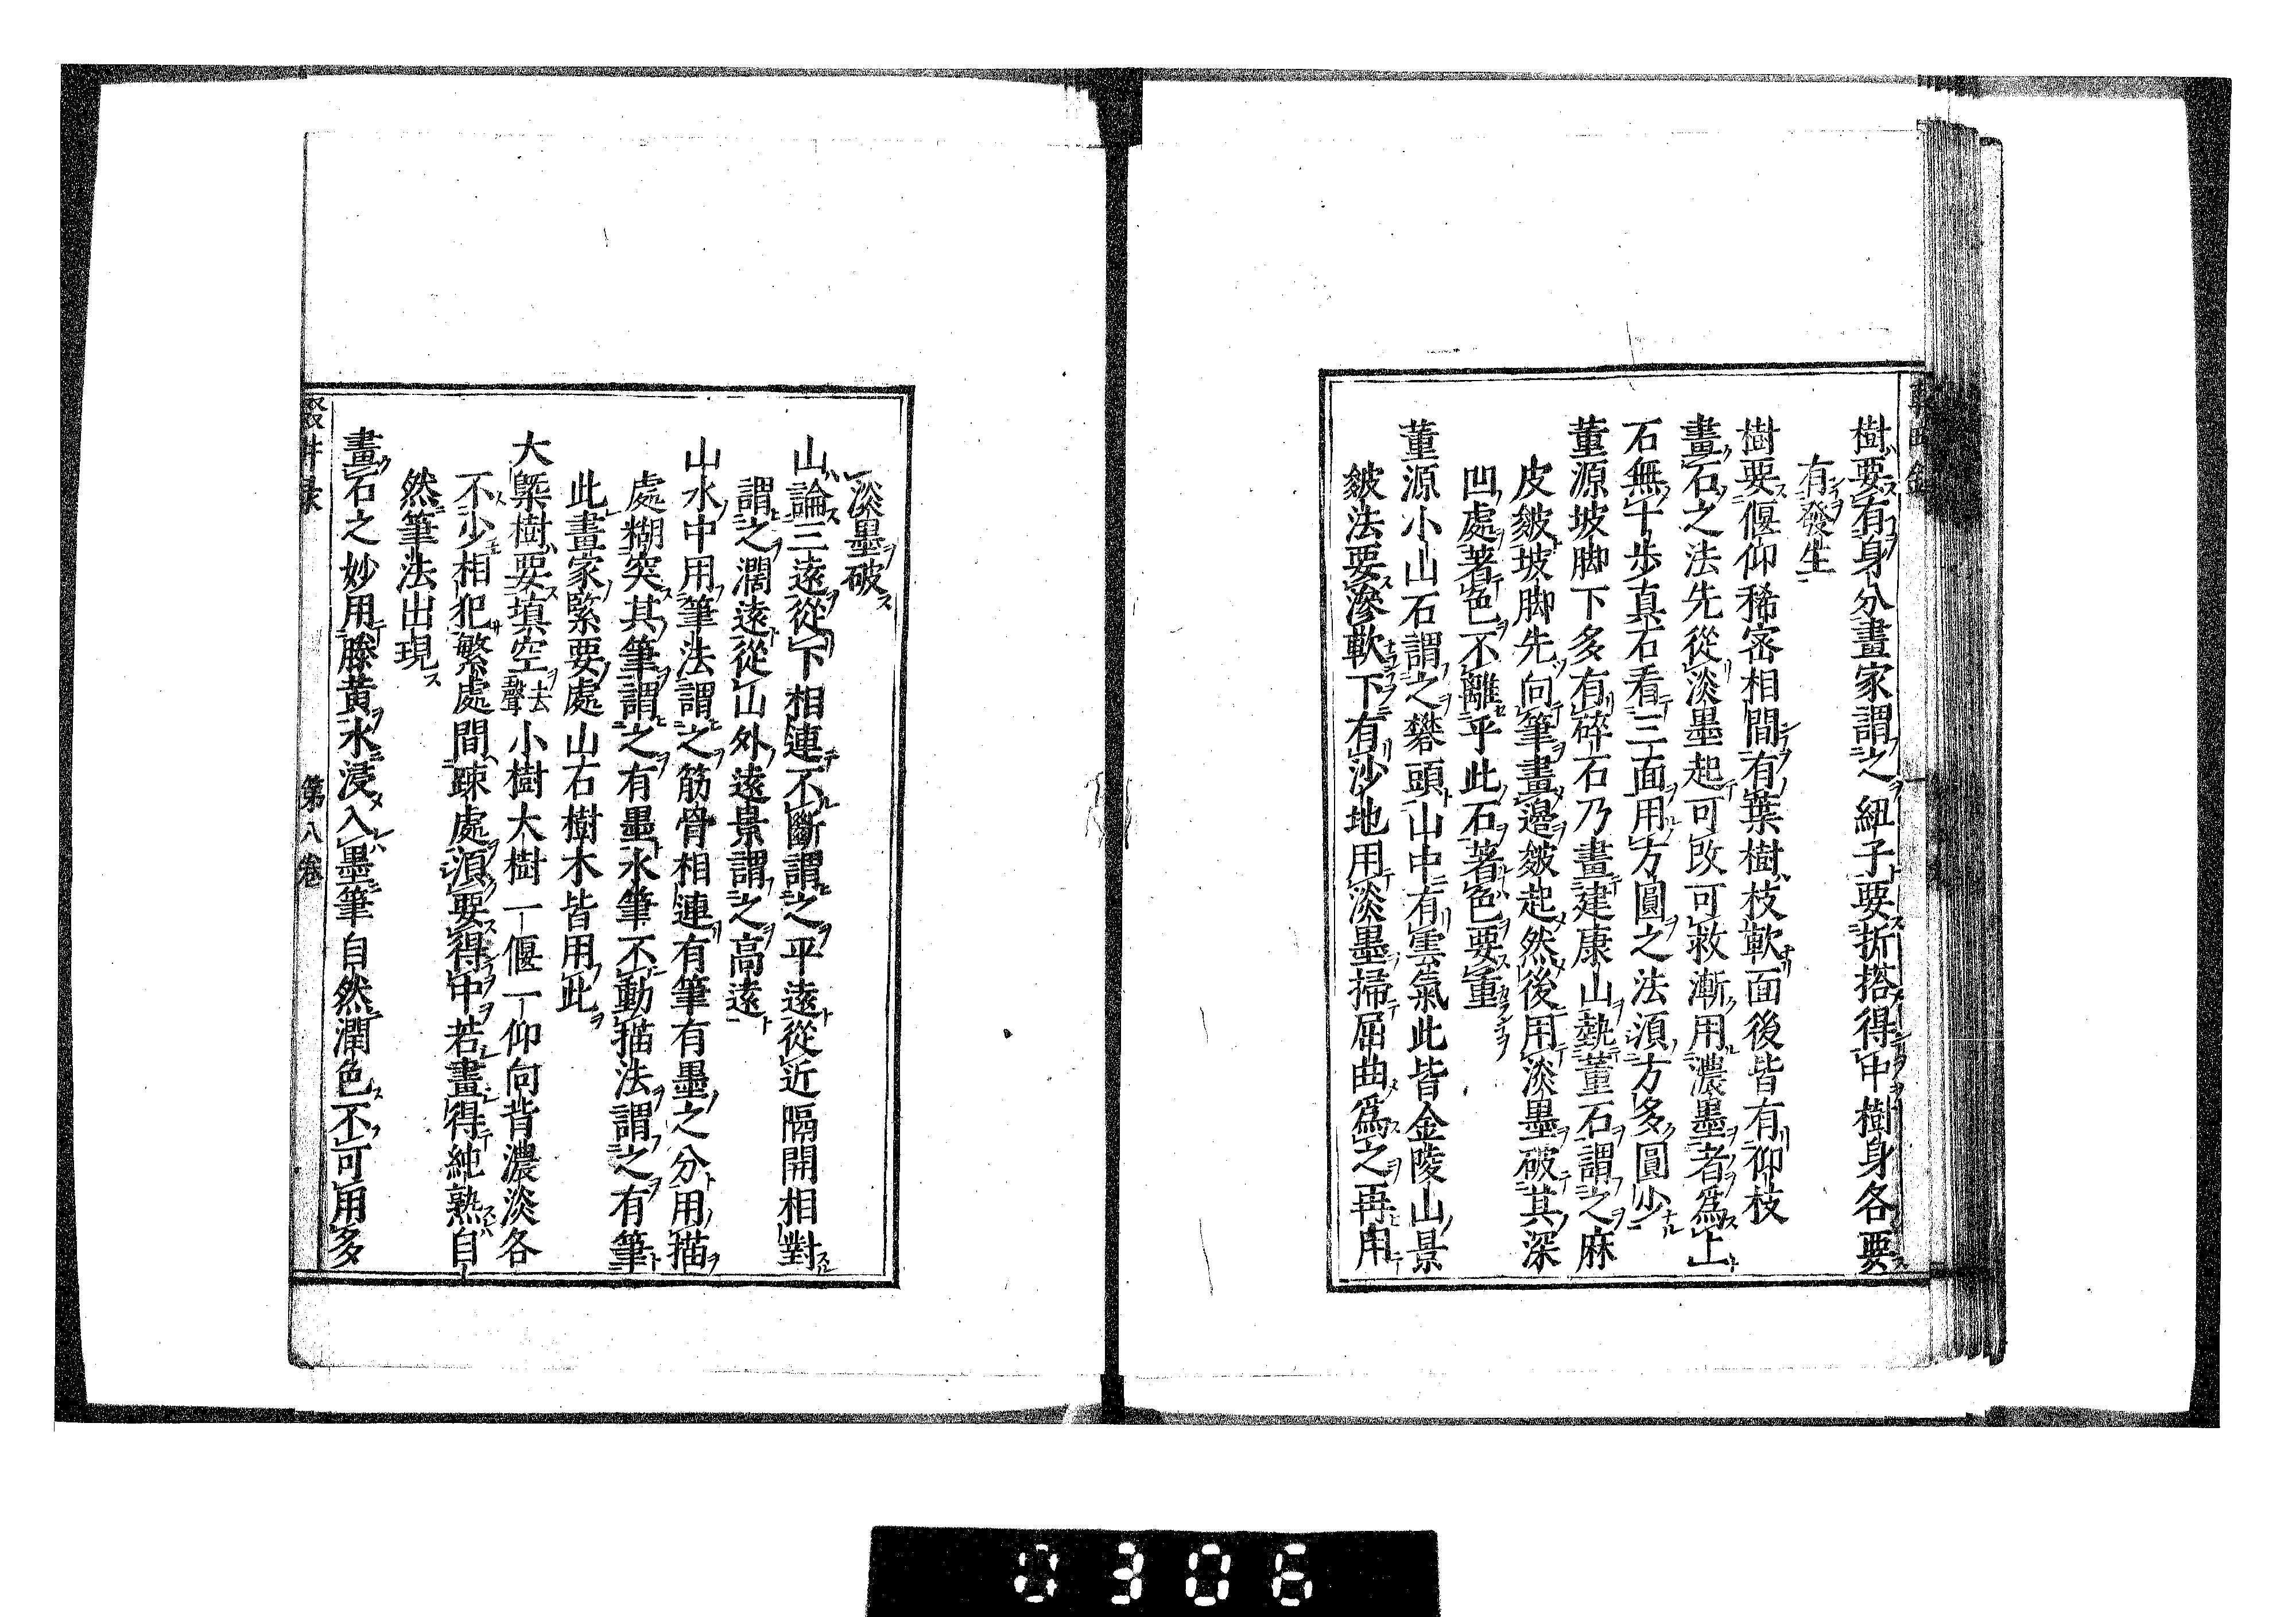 樹要有身分畫家謂之紐子要折搭得中樹身各要
有發生
樹要偃仰稀密相間有葉樹枝軟面後皆有仰枝
畫石之法先從淡墨起可改可救漸用濃墨者爲上
石無十步真石看三面用方圓之法須方多圓少
董源坡脚下多有碎石乃畫建康山㔟董石謂之麻
皮皴坡脚先向筆畫邊皴起然後用淡墨破其深
凹處著色不離乎此石著色要重
董源小山石謂之礬頭山中有雲氣此皆金陵山景
皴法要滲軟下有沙地用淡墨掃屈曲爲之再用
淡墨破
山論三遠從下相連不斷謂之平遠從近隔開相對
謂之濶遠從山外遠景謂之高遠
山水中用筆法謂之筋骨相連有筆有墨之分用描
處糊突其筆謂之有墨水筆不動描法謂之有筆
此畫家緊要處山石樹木皆用此
大槩樹要填空去聲小樹大樹一偃一仰向背濃淡各
不少相犯繁處間踈處須要得中若畫得純熟自
然筆法出現
畫石之妙用藤黃水浸入墨筆自然潤色不可用多
第八卷
0306